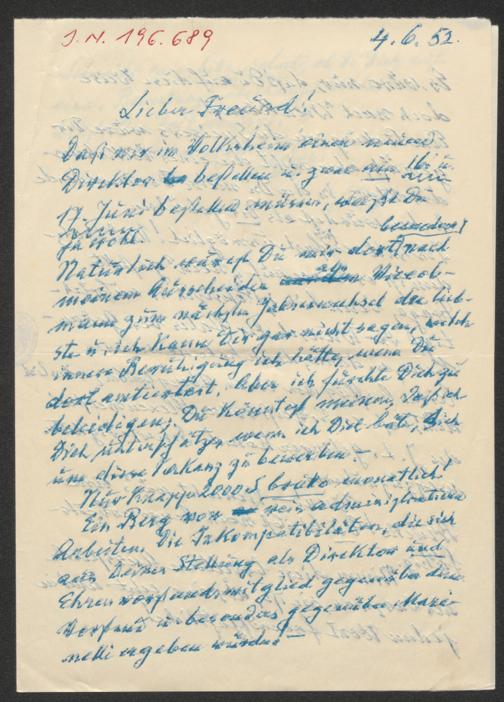 J.N. 196.689
4.6.52.
Lieber Freund!
Daß wir im Volksheim einen neuen
Direktor bestellen u. zwar
17. Juni bestellen müssen, weißt Du
ja wohl.
besonders
Natürlich wärest Du mir dort nach
meinem Ausscheiden
mann zum nächsten Jahreswechsel der lieb-
ste u. ich kann Dir gar nicht sagen, welch
innere Beruhigung ich hätte, wenn Du
dort amtiertest. Aber ich fürchte Dich zu
beleidigen. Du könntest meinen, daß ich
Dich unterschätze, wenn ich Dich bäte, Dich
um diese Vakanz zu bewerben –
Nur knapp 2000 S brutto monatlich!
Ein Berg von rein administrativen
Arbeiten. Die Inkompatibilität, die sich
aus Deiner Stellung als Direktor und
Ehren vorstandsmitglied gegenüber dem
Vorstand u. besonders gegenüber
ergeben würde!